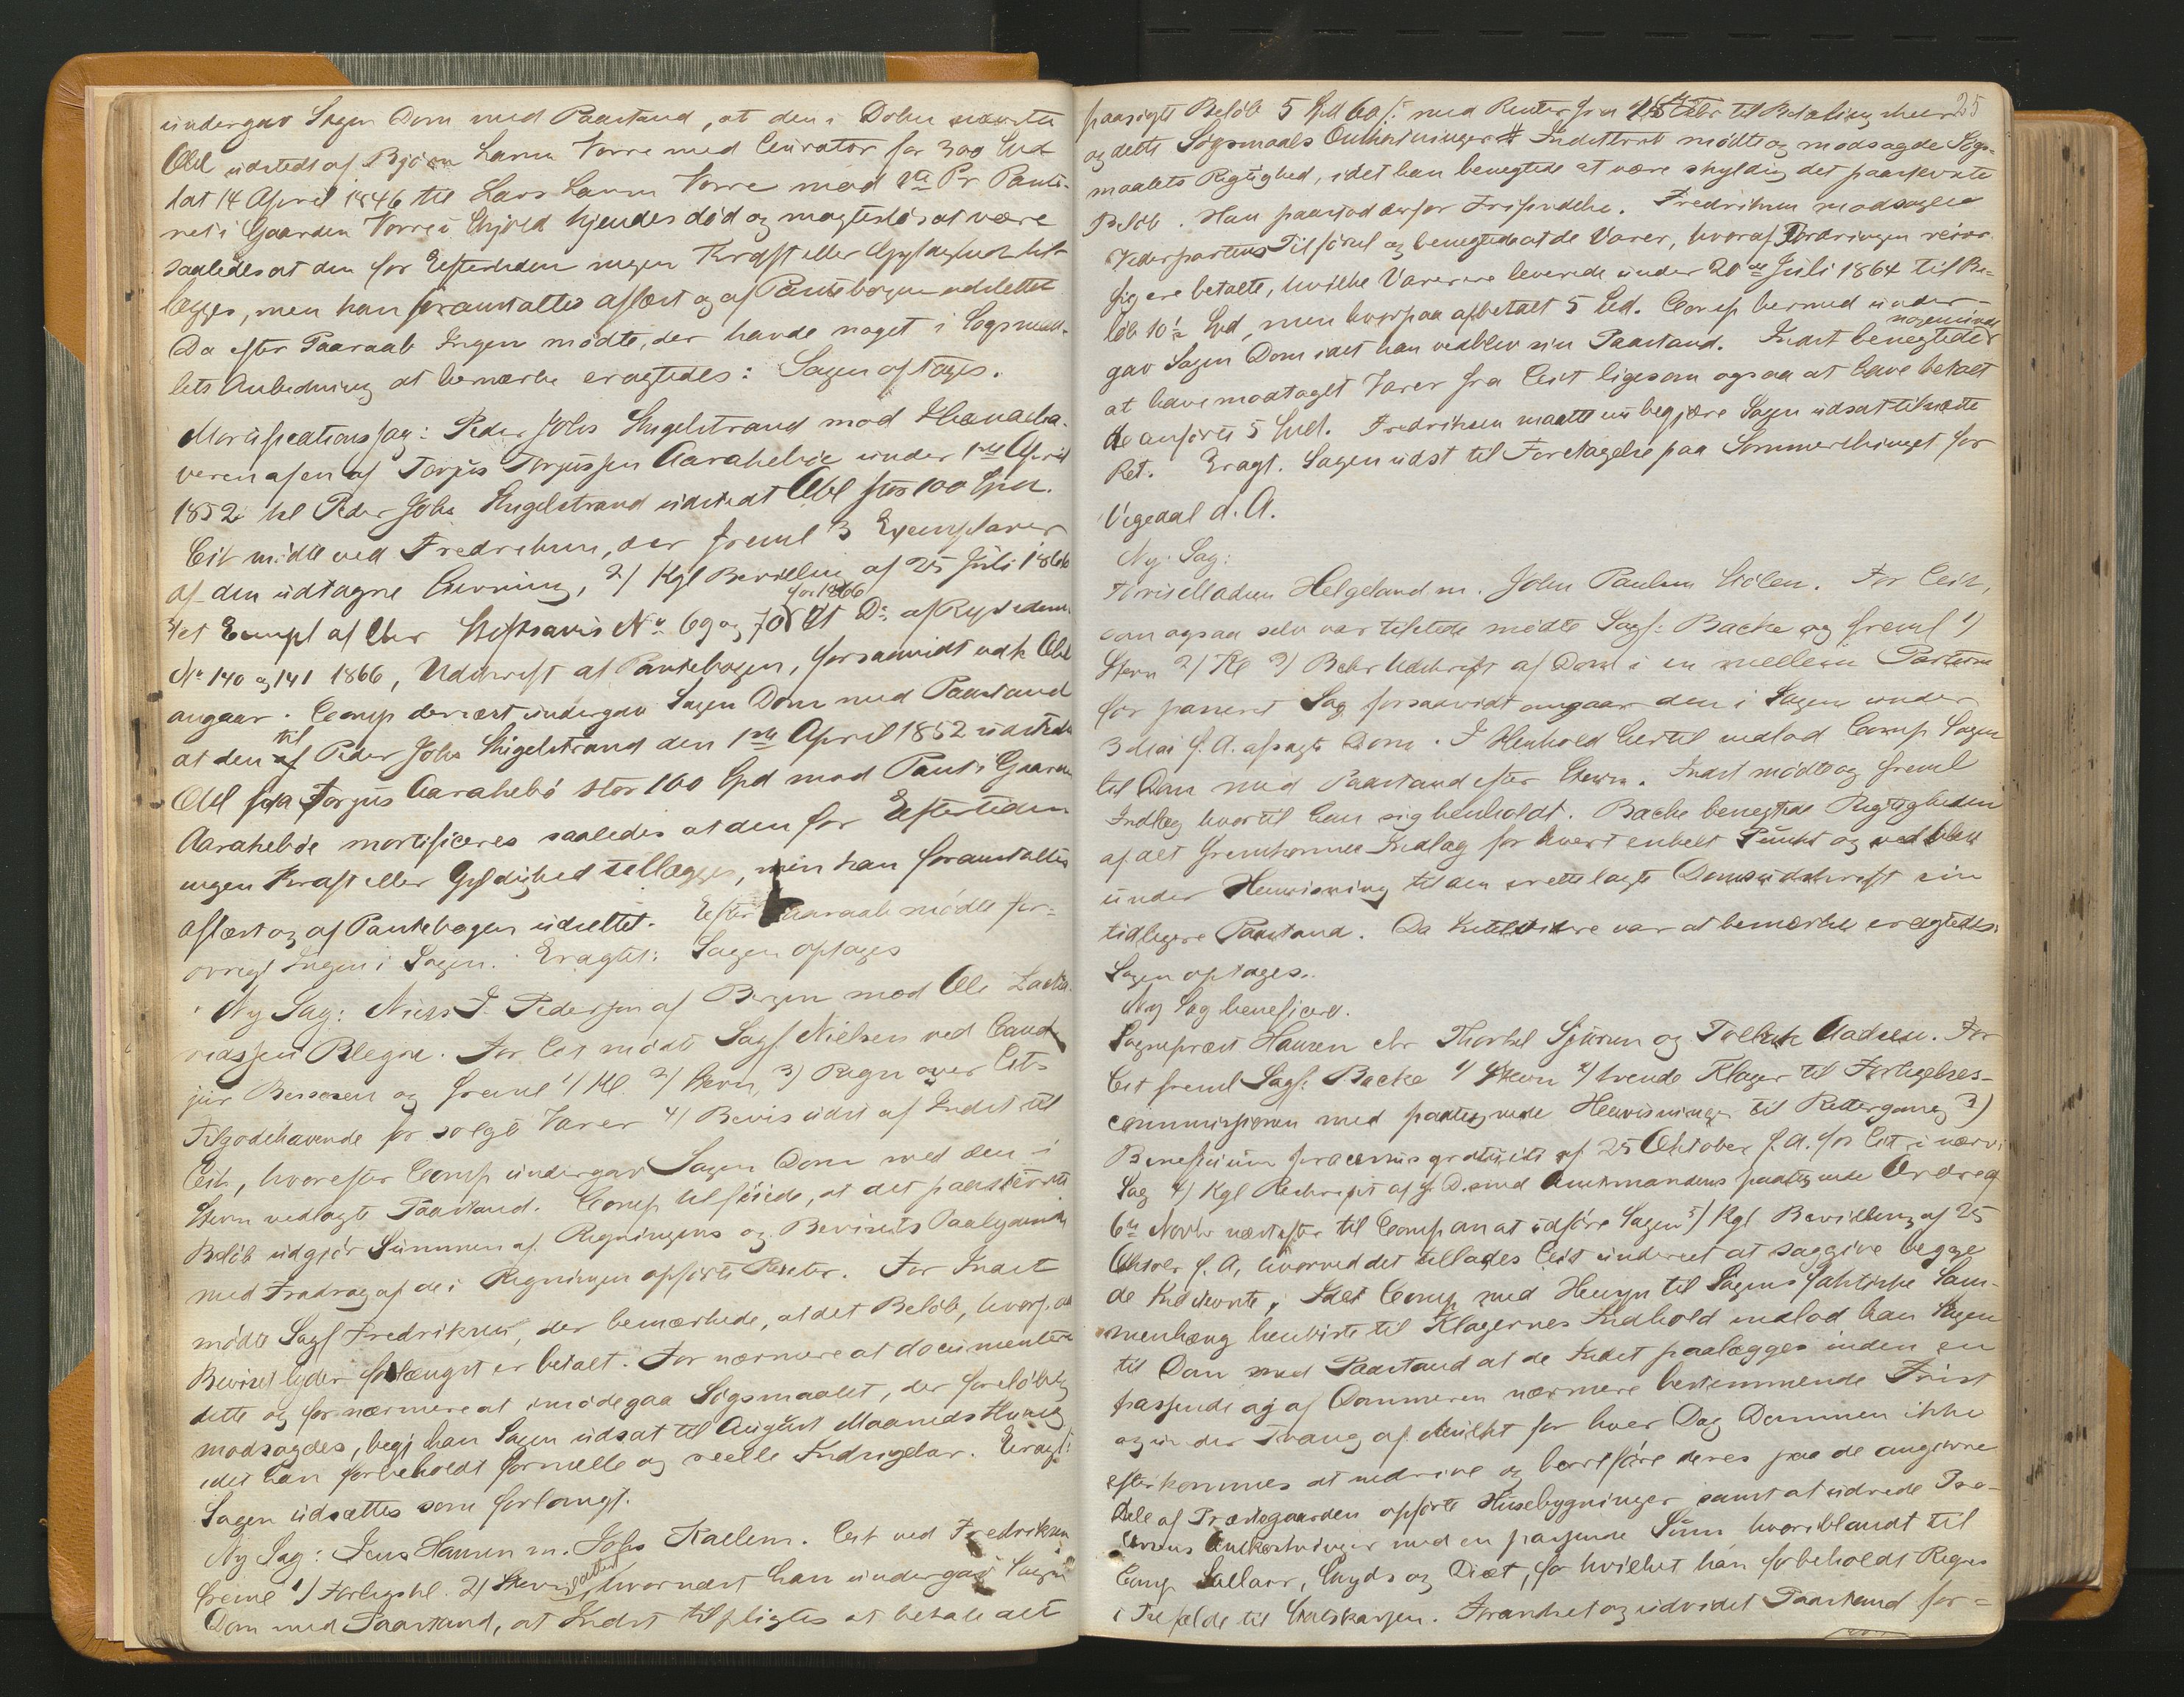 undergav Sagen Dom med Paastand, at den i Dobu nævnte
Obl udstedt af Bjørn Larsen Vorre med Curator for 300 Spd
dat 14 April 1846 til Lars Larsen Vorre mod 1ste Pr Pante-
ret i Gaarden Vorre i Skjold kjendes død og magtesløs at være
saaledes at den for Eftertiden ingen Kraft eller Gyldighed til-
lægges, men kan foranstaltes aflæst og af Pantebogen udslettet
Da efter Paaraab Ingen mødte, der havde noget i Søgsmaa-
lets Anledning at bemærke eragtedes: Sagen optages.
Mortificationssag: Peder Johs Stigelstrand mod Ihændeha-
veren af en af Torjus Torjussen Aarakebøe under 1ste April
1852 til Peder Johs Stigelstrand udstedt Obl stor 100 Spd.
Cit mødte ved Fredriksen, der freml 3 Exemplarer
af den udtagne Stevning, 2) Kgl Bevilling af 25 Juli 1866
3) et Exempl af Chr Stiftsavis No 69 og 70 for 1866 Et Do af Rigstidende
No 140 og 141 1866, Udskrift af Pantebogen, forsaavidt ndte Obl
angaar. Comp dernæst undergav Sagen Dom med Paastand
at den til Peder Johs Stigelstrand den 1ste April 1852 udstedte
Obl fra Torjus Aarakebø stor 100 Spd mod Pant i Gaarden
Aarakebøe mortificeres saaledes at den for Eftertiden
ingen Kraft eller Gyldighed tillægges, men kan foranstaltes
aflæst og af Pantebogen udslettet. Efter Paaraab mødte for-
øvrigt Ingen i Sagen. Eragtet: Sagen optages
Ny Sag: Niels J. Pedersen af Bergen mod Ole Zacha-
riassen Blegne. For Cit mødte Sagf Nielsen ved Cand
jur Bernsen og freml 1) Kl. 2) Stevn, 3) Regn over Cits
Tilgodehavende for solgte Varer 4) Bevis udst af Indst til
Cit, hvorefter Comp undergav Sagen Dom med den i
Stevn nedlagte Paastand. Comp tilføiede, at det paastevnte
Beløb udgjør Summen af Regningens og Bevisets Paalydende
med Fradrag af de i Regningen opførte Renter. For Indst
mødte Sagf Fredriksen, der bemærkede, at det Beløb, hvorpaa
Beviset lyder forlængst er betalt. For nærmere at documentere
dette og for nærmere at imødegaa Søgsmaalet, der foreløbig
modsagdes, begj han Sagen udsat til August Maaneds Thing
idet han forbeholdt formelle og reelle Indsigelser. Eragt:
Sagen udsættes som forlangt.
Ny Sag: Jens Hansen m. Johs Kallem. Cit ved Fredriksen
freml 1) Forligskl. 2) Stevn, hvornæst han undergav Sagen
Dom med Paastand, at Indst tilpligtes at betale det
25
paasøgte Beløb 5 Spd 60 s: med Renter fra til Betaling skeer
og dette Søgsmaals Omkostninger Indstevnte mødte og modsagde Søgs-
maalets Rigtighed, idet han benegtede at være skyldig det paastevnte
Beløb. Han paastod derfor Frifindelse. Fredriksen modsagde
Vederpartens Tilførsel og benegtede at de Varer, hvoraf Fordringen reiser
sig ere betalte, hvilke Varer ere leverede under 20de Juli 1864 til Be-
løb 10½ Spd, men hvorpaa afbetalt 5 Spd. Comp hermed under-
gav Sagen Dom idet han vedblev sin Paastand. Indst benegtede nogensinde
at have modtaget Varer fra Cit ligesom ogsaa at have betalt
de anførte 5 Spd. Fredriksen maatte nu begjære Sagen udsat til næste
Ret. Eragt. Sagen udst til Foretagelse paa Sommerthinget for
Vigedal d. A.
Ny Sag:
Tørris Madsen Helgeland m. John Paulsen Stølen. For Cit,
som ogsaa selv var tilstede mødte Sagf: Backe og freml 1)
Stevn 2) Kl 3) Bekr Udskrift af Dom i en mellem Parterne
før passeret Sag forsaavidt angaar den i Sagen under
3 Mai f. A. afsagte Dom. I Henhold hertil indlod Comp Sagen
til Dom med Paastand efter Stevn. Indst mødte og freml
Indlæg hvortil han sig henholdt. Backe benegtede Rigtigheden
af det fremkomne Indlæg for hvert enkelt Punkt og vedblev
under Henvisning til den irettelagte Domsudskrift sin
tidligere Paastand. Da Intet videre var at bemærke eragtedes:
Sagen optages.
Ny Sag beneficeret.
Sognepræst Hansen ctr Thorkel Sjursen og Tollak Aadsen. For
Cit freml Sagf: Backe 1) Stevn 2) tvende Klager til Forligelses-
commissionen med paategnede Henvisninger til Rettergang 3)
Beneficium processus gratuiti af 25 Oktober f. A. for Cit i nærv:
Sag 4) Kgl Reskript af s. D. med Amtmandens paategnede Ordre af
6te Novbr næstefter til Comp om at udføre Sagen 5) Kgl Bevilling af 25
Oktober f. A, hvorved det tillades Cit underet at saggive begge
de Indstevnte. Idet Comp med Hensyn til Sagens faktiske Sam-
menhæng henviste til Klagernes Indhold indlod han Sagen
til Dom med Paastand at de Indst paalægges inden en
passende og af Dommeren nærmere bestemmende Frist
og under Tvang af Mulkt for hver Dag Dommen ikke
efterkommes at nedrive og bortføre deres paa de angivne
Dele af Præstegaarden opførte Husebygninger samt at udrede Pro-
cessens Omkostninger med en passende Sum hvoriblandt til
Comp Sallær, Skyds og Diæt, for hvilket han forbeholdt Regres
i Tilfælde til Statskassen. Forandret og udvidet Paastand for-